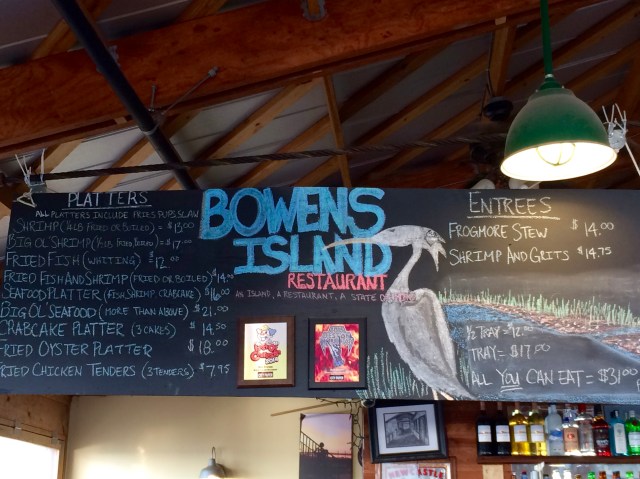 PLATTERS
ALL PLATTERS INCLUDE FRIES, PUPS, SLAW
SHRIMP (1/4 LB FRIED OR BOILED) = $13.00
BIG OL' SHRIMP = $17.00
FRIED FISH (WHITING) $12.00
FRIED FISH AND SHRIMP (FRIED OR BOILED) $14.50
SEAFOOD PLATTER (FISH, SHRIMP, CRABCAKE) $16.00
BIG OL' SEAFOOD (MORE THAN ABOVE) $21.00
CRABCAKE PLATTER (3 CAKES) $14.50
FRIED OYSTER PLATTER $18.00
FRIED CHICKEN TENDERS (3 TENDERS) $7.95
BOWENS
ISLAND
RESTAURANT
AN ISLAND, A RESTAURANT, A STATE OF
ENTREES
FROGMORE STEW $14.00
SHRIMP AND GRITS $14.75
1/2 TRAY = $12.00
TRAY = $17.00
ALL YOU CAN EAT = $31.00
NEWCASTLE